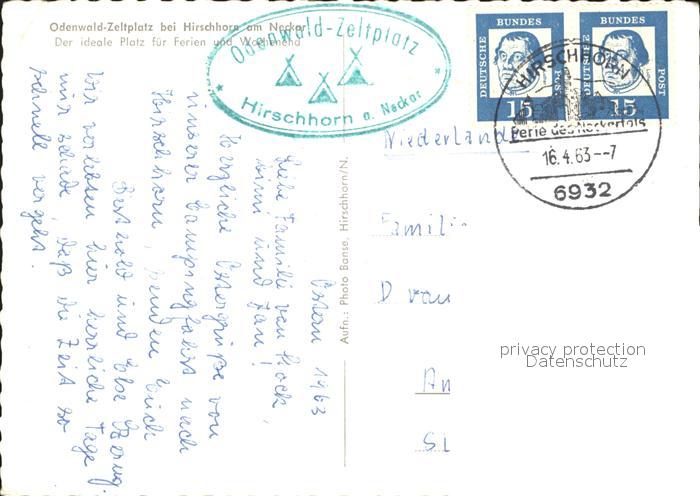 Odenwald-Zeltplatz bei Hirschhorn am Neckar
Der ideale Platz für Ferien und Wochenend
Odenwald-Zeltplatz
Hirschhorn a. Neckar
DEUTSCHE BUNDES POST
15
DEUTSCHE BUNDES POST
15
HIRSCHHORN
Perle des Neckartals
16.4.63--7
6932
Ostern 1963
Liebe Familie van
und Jan!
Herzliche Ostergrüße von
unserer Campingfahrt nach
Hirschhorn, senden Euch
und Else
Wir verleben hier herrliche Tage
nur schade, daß die Zeit so
schnell vergeht.
Aufn.: Photo Banse, Hirschhorn/N.
Niederlande
Famili
D van
An
privacy protection
Datenschutz